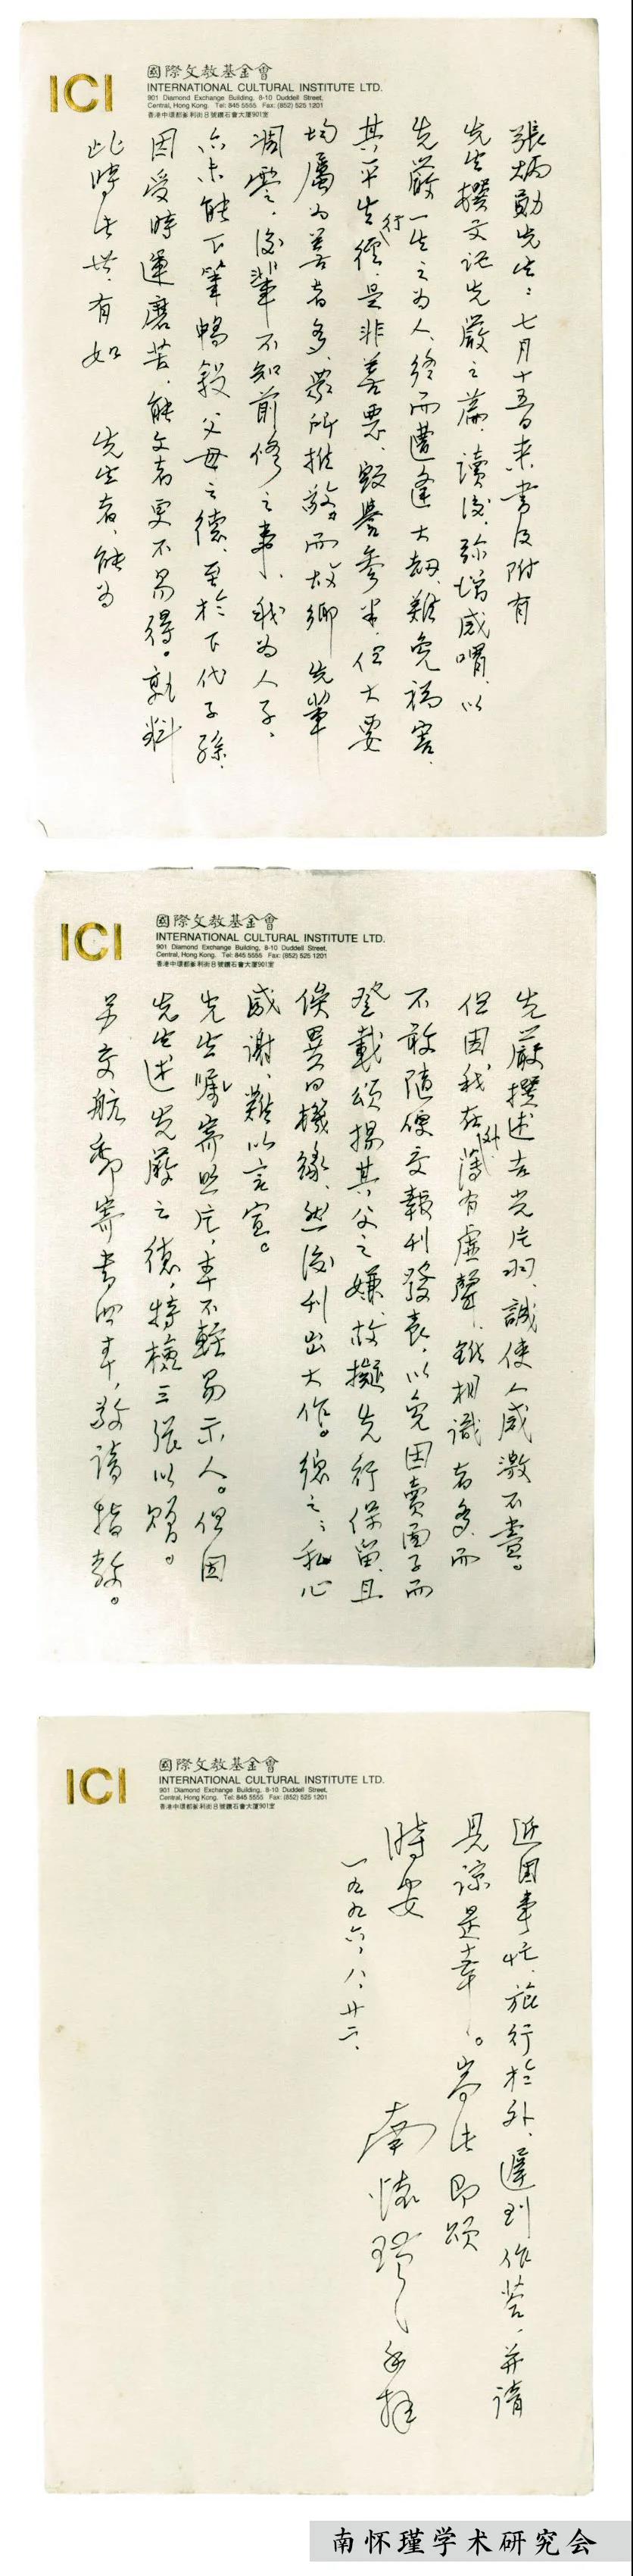 ICI
國際文教基金會
INTERNATIONAL CULTURAL INSTITUTE LTD.
901 Diamond Exchange Building, 8-10 Duddell Street,
Central, Hong Kong. Tel: 845 5555 Fax: (852) 525 1201
香港中環都爹利街8號鑽石會大廈901室
張炳勛先生：七月十五日來書及附有
先生撰文記先嚴之篇，讀後，弥增感喟，以
先嚴一生之為人，終而遭逢大劫，難免禍害，
其平生行徑，是非善惡，毀譽參半，但大要
均屬為善者多，眾所推敬，而故鄉 先輩
凋零，後輩不知前修之事，我為人子，
亦未能下筆暢敘父母之德，至於下代子孫，
因受時運磨苦，能文者更不易得。孰料
此時此世，有如 先生者，能為
ICI
國際文教基金會
INTERNATIONAL CULTURAL INSTITUTE LTD.
901 Diamond Exchange Building, 8-10 Duddell Street,
Central, Hong Kong. Tel: 845 5555 Fax: (852) 525 1201
香港中環都爹利街8號鑽石會大廈901室
先嚴撰述吉光片羽，誠使人感激不盡。
但因，我在外薄有虛聲，雖相識者多，而
不敢隨便交報刊發表，以免因賣面子而
登載頌揚其父之嫌，故擬先行保留，且
俟異日機緣，然後刊出大作。總之，私心
感謝，難以言宣。
先生囑寄照片，本不輕易示人。但因
先生述先嚴之德，特檢三張以贈。
另交航郵寄書四本，敬請指教。
ICI
國際文教基金會
INTERNATIONAL CULTURAL INSTITUTE LTD.
901 Diamond Exchange Building, 8-10 Duddell Street,
Central, Hong Kong. Tel: 845 5555 Fax: (852) 525 1201
香港中環都爹利街8號鑽石會大廈901室
近因事忙，旅行於外，遲到作答，并請
見諒是幸。耑此即頌
時安
南懷瑾 手拜
一九九六，八，廿二，
南怀瑾学术研究会